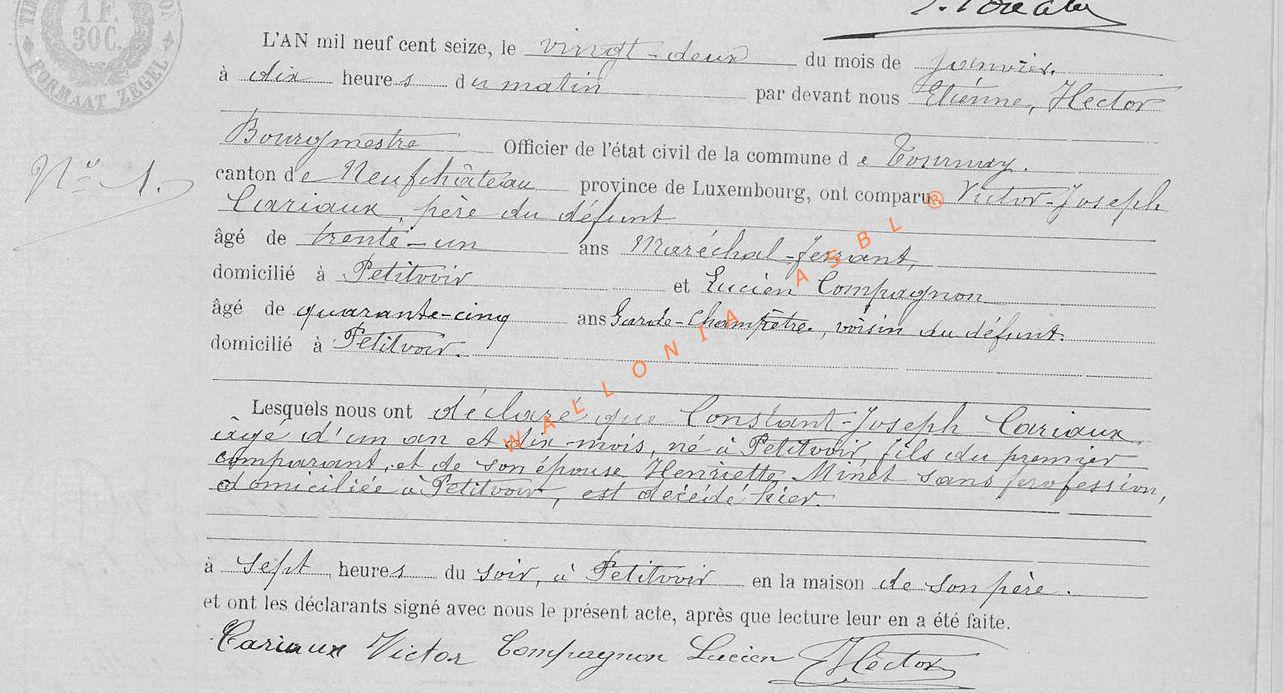 1 F.
30 C.
FORMAAT ZEGEL
L'AN mil neuf cent seize, le vingt-deux du mois de janvier.
à dix heures du matin par devant nous Etiénne, Hector
Bourgmestre Officier de l'état civil de la commune de Tournay.
N° 1.
canton de Neufchâteau province de Luxembourg, ont comparu Victor-Joseph
Cariaux, père du défunt
âgé de trente-un ans Maréchal-ferrant,
domicilié à Petitvoir et Lucien Compagnon
âgé de quarante-cinq ans Garde-Champêtre, voisin du défunt.
domicilié à Petitvoir.
WALLONIA ASBL ®
Lesquels nous ont déclaré que Constant-Joseph Cariaux
âgé d'un an et dix-mois, né à Petitvoir, fils du premier
comparant, et de son épouse Henriette Minet sans profession,
domiciliée à Petitvoir, est décédé hier.
à sept heures du soir, à Petitvoir en la maison de son père.
et ont les déclarants signé avec nous le présent acte, après que lecture leur en a été faite.
Cariaux Victor Compagnon Lucien Hector